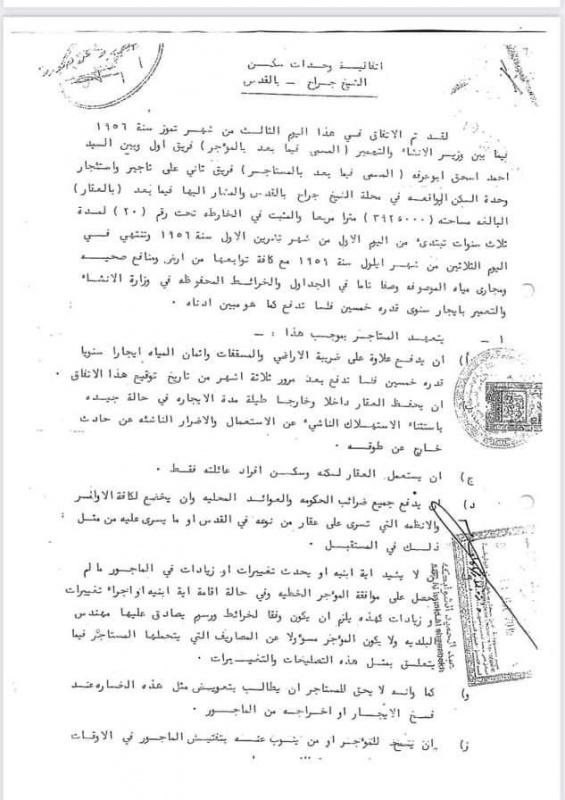 اتفاقية وحدات سكن
الشيخ جراح - بالقدس
لقد تم الاتفاق في هذا اليوم الثالث من شهر تموز سنة ١٩٥٦
فيما بين وزير الانشاء والتعمير (المسمى فيما بعد بالمؤجر) فريق اول وبين السيد
احمد اسحق ابوعرفه (المسمى فيما بعد بالمستاجر) فريق ثاني على تاجير واستئجار
وحدة السكن الواقعه في محلة الشيخ جراح بالقدس والمشار اليها فيما بعد (بالعقار)
البالغه مساحته مترا مربعا والمثبت في الخارطه تحت رقم (٢٠) لمدة
ثلاث سنوات تبتدئ من اليوم الاول من شهر تشرين الاول سنة ١٩٥٦ وتنتهي في
اليوم الثلاثين من شهر ايلول سنة ١٩٥٩ مع كافة توابعها من ارض ومنافع صحيه
ومجارى مياه الموصوفه وصفا تاما في الجداول والخرائط المحفوظه في وزارة الانشاء
والتعمير بايجار سنوى قدره خمسين فلسا تدفع كما هو مبين ادناه .
١ - يتعهد المستاجر بموجب هذا : -
أ) ان يدفع علاوة على ضريبة الاراضي والمسقفات واثمان المياه ايجارا سنويا
قدره خمسين فلسا تدفع بعد مرور ثلاثة اشهر من تاريخ توقيع هذا الاتفاق
ان يحفظ العقار داخلا وخارجا طيلة مدة الايجاره في حالة جيده
باستثناء الاستهلاك الناشيء عن الاستعمال والاضرار الناشئه عن حادث
خارج عن طوقه .
ج) ان يستعمل العقار لسكنه وسكن افراد عائلته فقط .
د) ان يدفع جميع ضرائب الحكومه والعوائد المحليه وان يخضع لكافة الاوامر
والانظمه التي تسرى على عقار من نوعه في القدس او ما يسرى عليه من مثل
ذلك في المستقبل .
لا يشيد اية ابنيه او يحدث تغييرات او زيادات في الماجور ما لم
يحصل على موافقة المؤجر الخطيه وفي حالة اقامة اية ابنيه او اجراء تغييرات
او زيادات كهذه يلزم ان يكون وفقا لخرائط ورسم يصادق عليها مهندس
البلديه ولا يكون المؤجر مسؤولا عن المصاريف التي يتحملها المستاجر فيما
يتعلق بمثل هذه التصليحات والتغييرات .
و) كما وانه لا يحق للمستاجر ان يطالب بتعويض مثل هذه الخساره عند
فسخ الايجار او اخراجه من الماجور .
ز) ان يسمح للمؤجر او من ينوب عنه بتفتيش الماجور في الاوقات